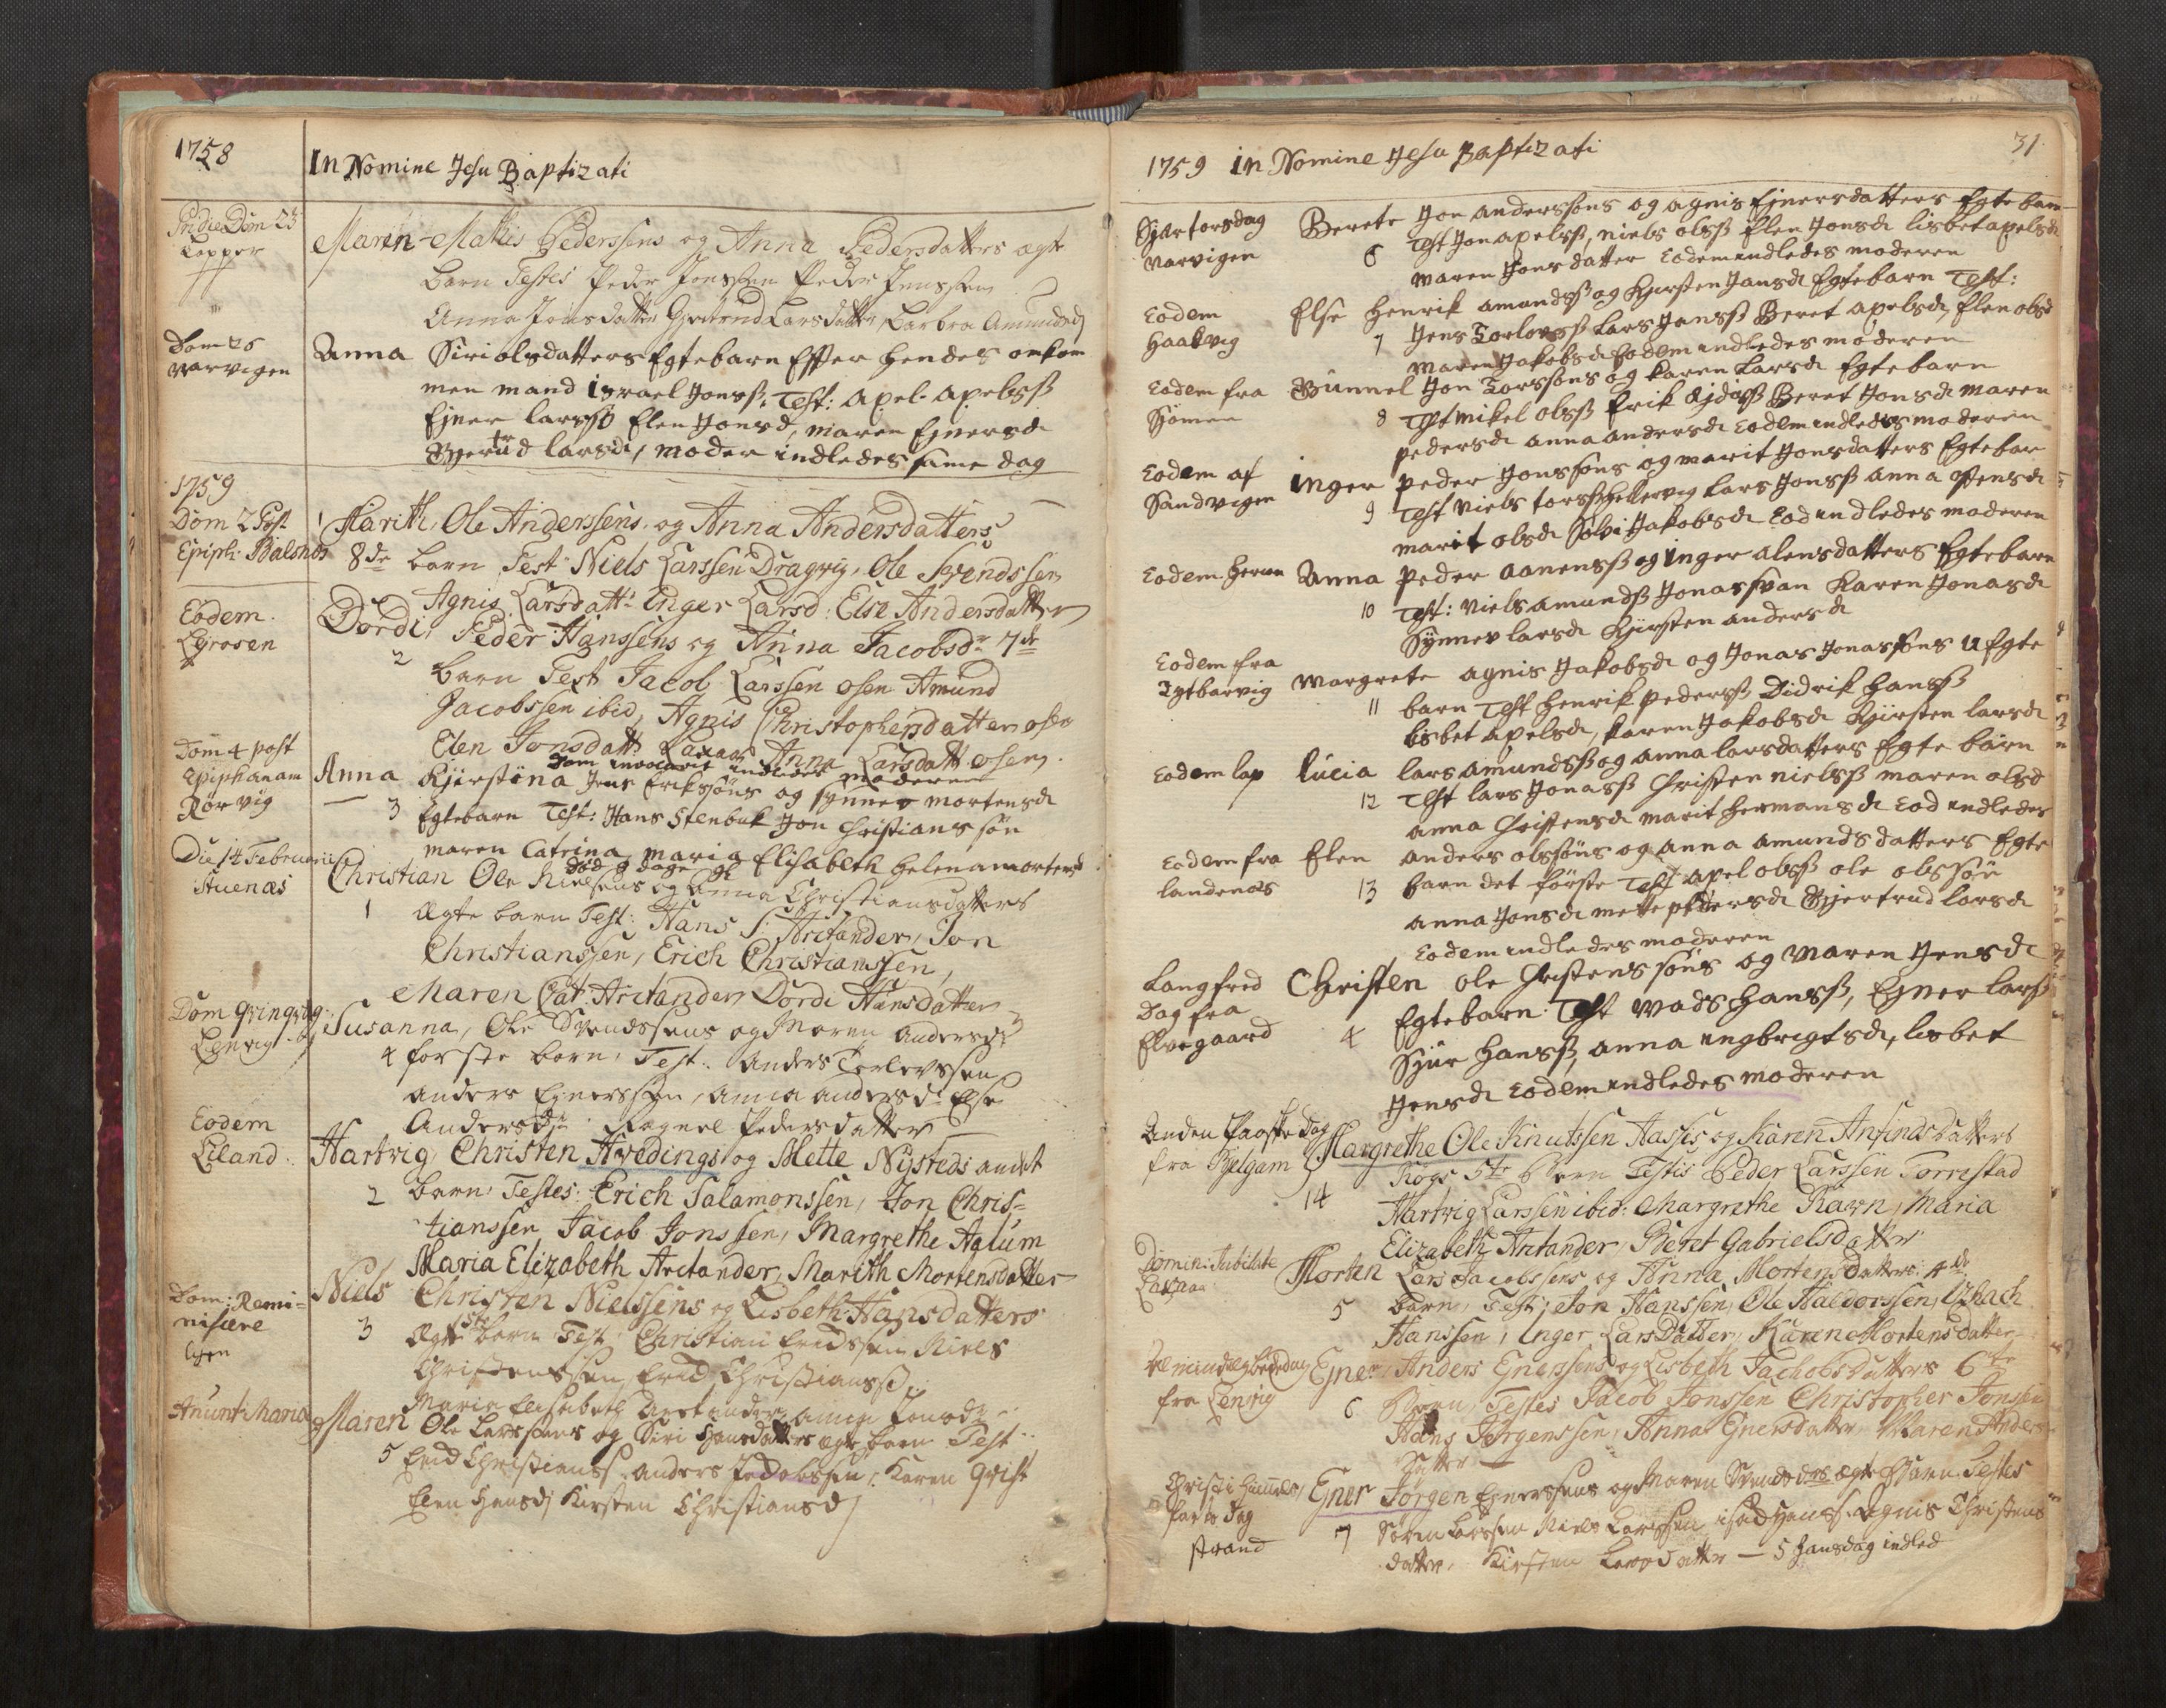 1758
In Nomine Jesu Baptizati
Pridie Dom 23
Lepper
Maren - Mattis Pedersens og Anna Pedersdatters ægte
barn Testes Peder Jonssen Peder Jenssen
Anna Jonsdatter Gjertrud Larsdatter, Barbra Amundsd
Dom 26
Varvigen
Anna Siri olsdatters Egtebarn Efter hendes omkom
men mand israel Jonsß. Test: Apel Apelsß
Ejner larsß Elen Jonsd, maren Ejnersd
Gjertrud larsd, moder indledes same dag
1759
Dom 2 Post
Epiph: Bialsnes
1 Marith, Ole Anderssens og Anna Andersdatters
8de barn Test Niels Larssen Dragvig, Ole Svendssen
Agnis Larsdatt: Inger Larsd: Else Andersdatter
Eodem
Dordi, Peder Hanssens og Anna Jacobsdr 7de
2 barn Test Jacob Larssen osen Amund
Jacobssen ibid, Agnis Christophersdatter osen
Elen Jonsdatt: Laxaae Anna Larsdatt osen.
Dom invocavit indledes moderen
Dom 4 post
Epiphanam
Rörvig
Anna Kjirstöna Jens Erikssöns og synnev mortensd
3 Egtebarn Test: Hans Stenbuk Jon Christianssön
maren Catrina maria Elisabeth Helena mortensd
död 9 dage gl
Die 14 Februarii
Stuenæs
Christian Ole Nielssens og Anna Christiansdatters
1 Ægte barn Test: Hans S: Arctander, Jon
Christianssen, Erich Christianssen,
Maren Cat: Arctander Dordi Hansdatter
Dom Qvinqvag
Lenvig
Susanna, Ole Svendssens og Maren Andersd
4 forste barn, Test: Anders Torlevssen
Anders Ejnerssen, Anna Andersd: Else
Andersd: Ragnel Pedersdatter
Eodem
Liland
Hartvig, Christen Hvedings og Mette Nysteds andet
2 barn, Testes: Erich Salamonssen, Jon Chris-
tianssen Jacob Jonssen, Margrethe Aglum
Maria Elizabeth Arctander, Marith Mortensdatter
Dom: Remi-
niscere
Niels Christen Nielssens og Lisbeth Hansdatters
3 Ægte barn Test: Christian Ericssen Niels
Christenssen, Eric Christianss
Maria Elisabeth Arctander, Anne Jonsd
Anunt: Maria
Maren Ole Larssens og Siri Hansdatters ægte barn Test:
5 Eric Christianss: Anders Jacobssen, Karen Qvist
Elen Hansd Kirsten Christiansd
1759 in Nomine Jesu Baptizati
31
Skjærtorsdag
Varvigen
Berete Jon anderssons og agnis Ejnersdatters Egte barn
6 Test Jon apelsß, niels olsß Elen Jonsd lisbet apelsd
maren Jonsdatter Eodem indledes moderen
Eodem
Haakvig
Else Henrik amundsß og Kjirsten Jansd Egtebarn Test:
7 Jens Torlevsß lars Jansß Beret apelsd, Elen olsd
maren Jakobsd Eodem indledes moderen
Eodem fra
Sjomen
Gunnel Jon Larssons og Karen larsd Egtebarn
8 Test mikel olsß Erik Ajdisß Beret Jonsd maren
pedersd anna andersd Eodem indledes moderen
Eodem af
Sandvigen
inger peder Jonssons og marit Jonsdatters Egtebar
9 Test niels larsß Hellervig lars Jonsß anna Estensd
marit olsd Sølvi Jakobsd Eod indledes moderen
Eodem
Anna peder aanensß og inger olensdatters Egtebarn
10 Test: niels amundsß Jonas svan Karen Jonasd
Synnev larsd Kjirsten andersd
Eodem fra
margrete agnis Jakobsd og Jonas Jonassons uEgte
11 barn Test Henrik pedersß Didrik Hansß
lisbet apelsd, Karen Jakobsd Kjirsten larsd
Eodem lap
lucia lars amundsß og anna larsdatters Egte barn
12 Test lars Jonasß Christen nielsß maren olsd
anna Christensd marit Hermansd Eod indledes
Eodem fra
landenæs
Elen anders olssöns og anna amundsdatters Egte
13 barn det förste Test Apel olsß ole olssön
anna Jonsd mette pedersd Gjertrud larsd
Eodem indledes moderen
Langfred
dag fra
Elvegaard
Christen ole Christenssöns og maren Jensd
4 Egtebarn Test Mads Hansß, Ejner larsß
Sjur Hansß, anna ingbrigtsd, lisbet
Jensd Eodem indledes moderen
Anden Paaske dag
fra
Margrethe Ole Knutssen Aases og Karen Anfinds datters
14 5te Barn Testis Peder Larssen Torrestad
Hartvig Larssen ibid: Margrethe Ravn, Maria
Elizabeth Arctander, Beret Gabrielsdatter
Domin: Jubilate
Laxaae
Morten Lars Jacobssens og Anna Mortensdatters 4de
5 barn, Test; Jon Hanssen, Ole Haldorssen,
Hanssen, Inger LarsDatter, Karen Mortensdatter
Almindelig bededag
fra Lenvig
Ejner, Anders Enerssens og Lisbeth Jachobsdatters 6te
6 Barn, Testes Jacob Jonssen Christopher Jonssen
Hans Jørgenssen, Anna Enersdatter, Maren Anders
datter
Christi Himmel
farts dag
strand
Ener Jörgen Ejnerssens og Maren Svendsdrs ægte Barn. Testes
7 Søren Larssen Niels Larssen Hanss. Agnis Christens
datter, Kirsten Larsdatter — S Hansdag indled